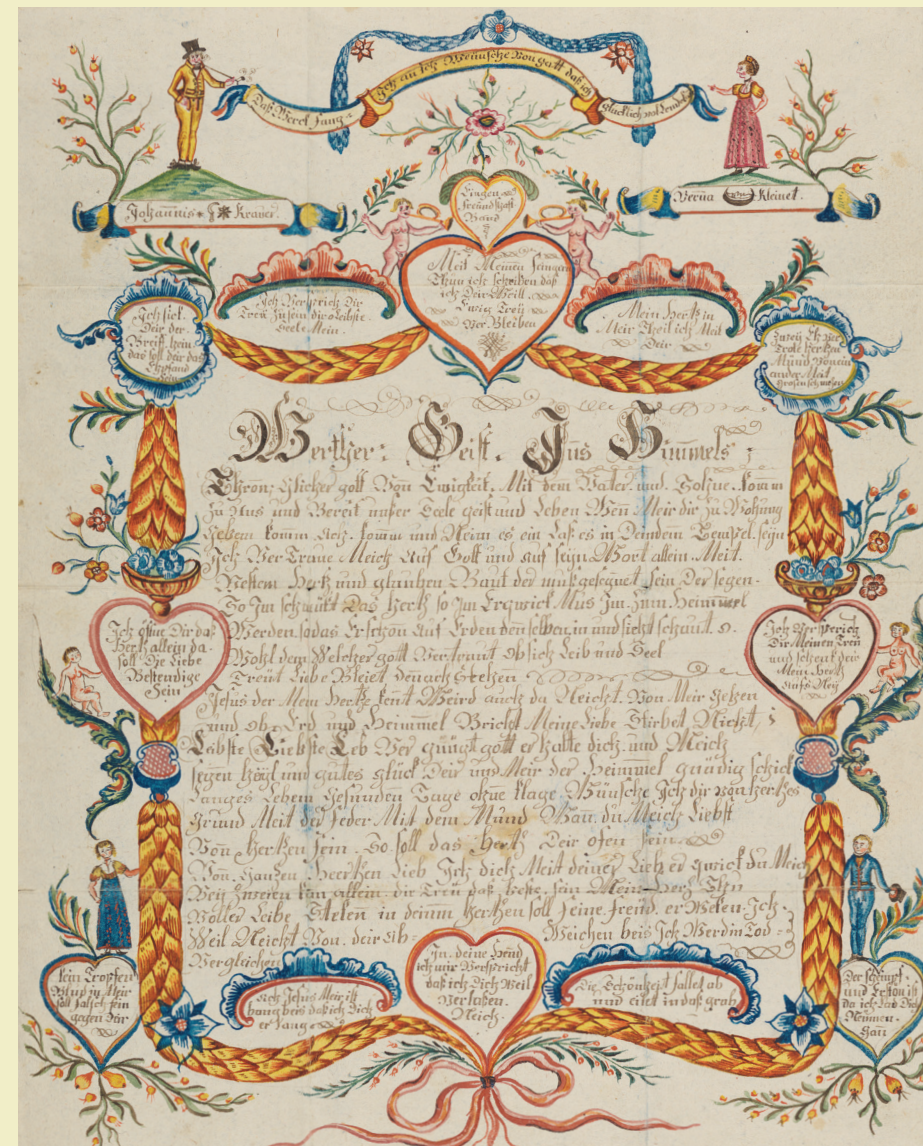 Das Werck fang
Ich an Ich Wünsche Von gott daß ich
glücklich vol Ended
Johannis Krauer.
Verna Kleinet.
Freundschaft
Band
Meit Meinen fingen
Thun ich schreiben daß
ich Deir Weill
Ewig Trey
Ver Bleiben
Ich Versprich Dir
Treü Zu sein die Liebste
Seele Mein.
Mein Hertz in
Meir Theil ich Meit
Deir
Ich sick
Deir der
Breiff hein
das soll deir das
Pfand
sein
Zwey
Hertzen
Mund Von ein
ander Meit
Grosen schmertzen
Werther: Geist. Jns Himmels;
Thron: Glicher gott Von Ewigkeit. Mit dem Vater und Sohne. komm
Zu Uns und Bereit unser Seele geist und Leben Wen Meir dir zu Wohnung
geben komm Ach. komm und Neim es ein Laß es in Deindem Tempel. seyn
Ich Ver Traue Meich Auf Gott und auf sein Wort allein. Meit.
Vestem Hertz und glauben Baut der muß gesegnet sein Der segen.
So Im schmükt Das Hertz so Im Erqwickt Mus Im. Zum. Heimmel
Werden, so das Er schon Auf Erden den selben, in und sicht schaut.
Wohl dem Welcher gott Vertraut Ob sich Leib und Seel
Treüt Liebe Bleiet denach Stehen
Jesus der Mein Hertz kennt Weird auch da Neicht. Von Meir gehen
und ob. Erd und Heimmel Bricht Meine Liebe Stirbet Nicht,
Leibste Liebste Leb Ver gnügt gott er halte dich und Meich
segen Heyl und gutes glück Deir und Meir der Heimmel gnädig schick
Langes Lebem Gesunden Tage ohne klage. Wünsche Ich dir von Hertzes
grund Meit der Feder. Mit dem Mund Wan. du Meich Liebst
Von Hertzen sein. So soll das Hertz Deir ofen sein
Von. Gantzen. Heertzen Lieb Ich dich Meit deiner Lieb er qwick du Meich
Bey Zweien kan allein. die Treü das beste. sein Mein Hertz
Volles Leibe. Stelen in deinm Hertzen soll seine freud. er Weken. Ich
Weil Neicht Von. deir Ab= Weichen beis Ich Werd in Tod=
Vergleichen
Ich öffne Dir das
Hertz allein da
soll Die Liebe
Bestendige
Sein
Ich Versperich
Dir Meinen Treü
und schenk deir
Mein Hertz
aufs Ney
kein Tropfen
Blud in Meir
soll falsch sein
gegen Dir
Nach Jesus Meir ist
bang beis daß ich Dich
er fang
In. deine Hend
ich mir Verspricht
daß ich Dich Weil
Verlaßen.
Neich.
Die Schönheit fallet ab
und eilet in daß grab
Der schimpf
und
da ich ab Von
Neimen.
Kan